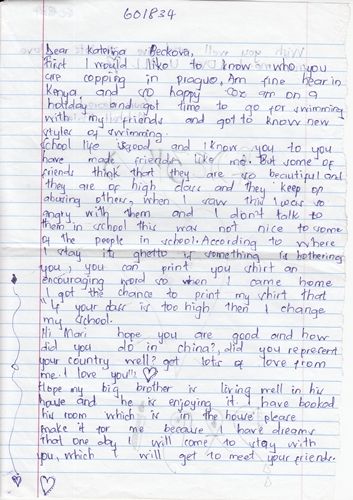 601834
Dear Katerina Beckova,
First I would like to know who you
are copping in prague, Am fine hear in
Kenya, and so happy coz am on a
holiday and got time to go for swimming
with my friends and got to know new
styles of swimming.
School life is good and I know you to you
have made friends like me. But some of
friends think that they are so beautiful and
they are of high class and they keep on
abusing others, when I saw this I was so
angry with them and I don't talk to
them in school this was not nice to some
of the people in school. According to where
I stay its ghetto if something is bothering
you, you can print you shirt an
encouraging word so when I came home
I got the chance to print my shirt that
"If your class is too high then I change
my school.
Hi Mari hope you are good and how
did you do in china?, did you represent
your country well? got lots of love from
me. I love you"
Hope my big brother is living well in his
house and he is enjoying it. I have booked
his room which is in the house please
make it for me because I have dreams
that one day I will come to stay with
you, which I will get to meet your friends.